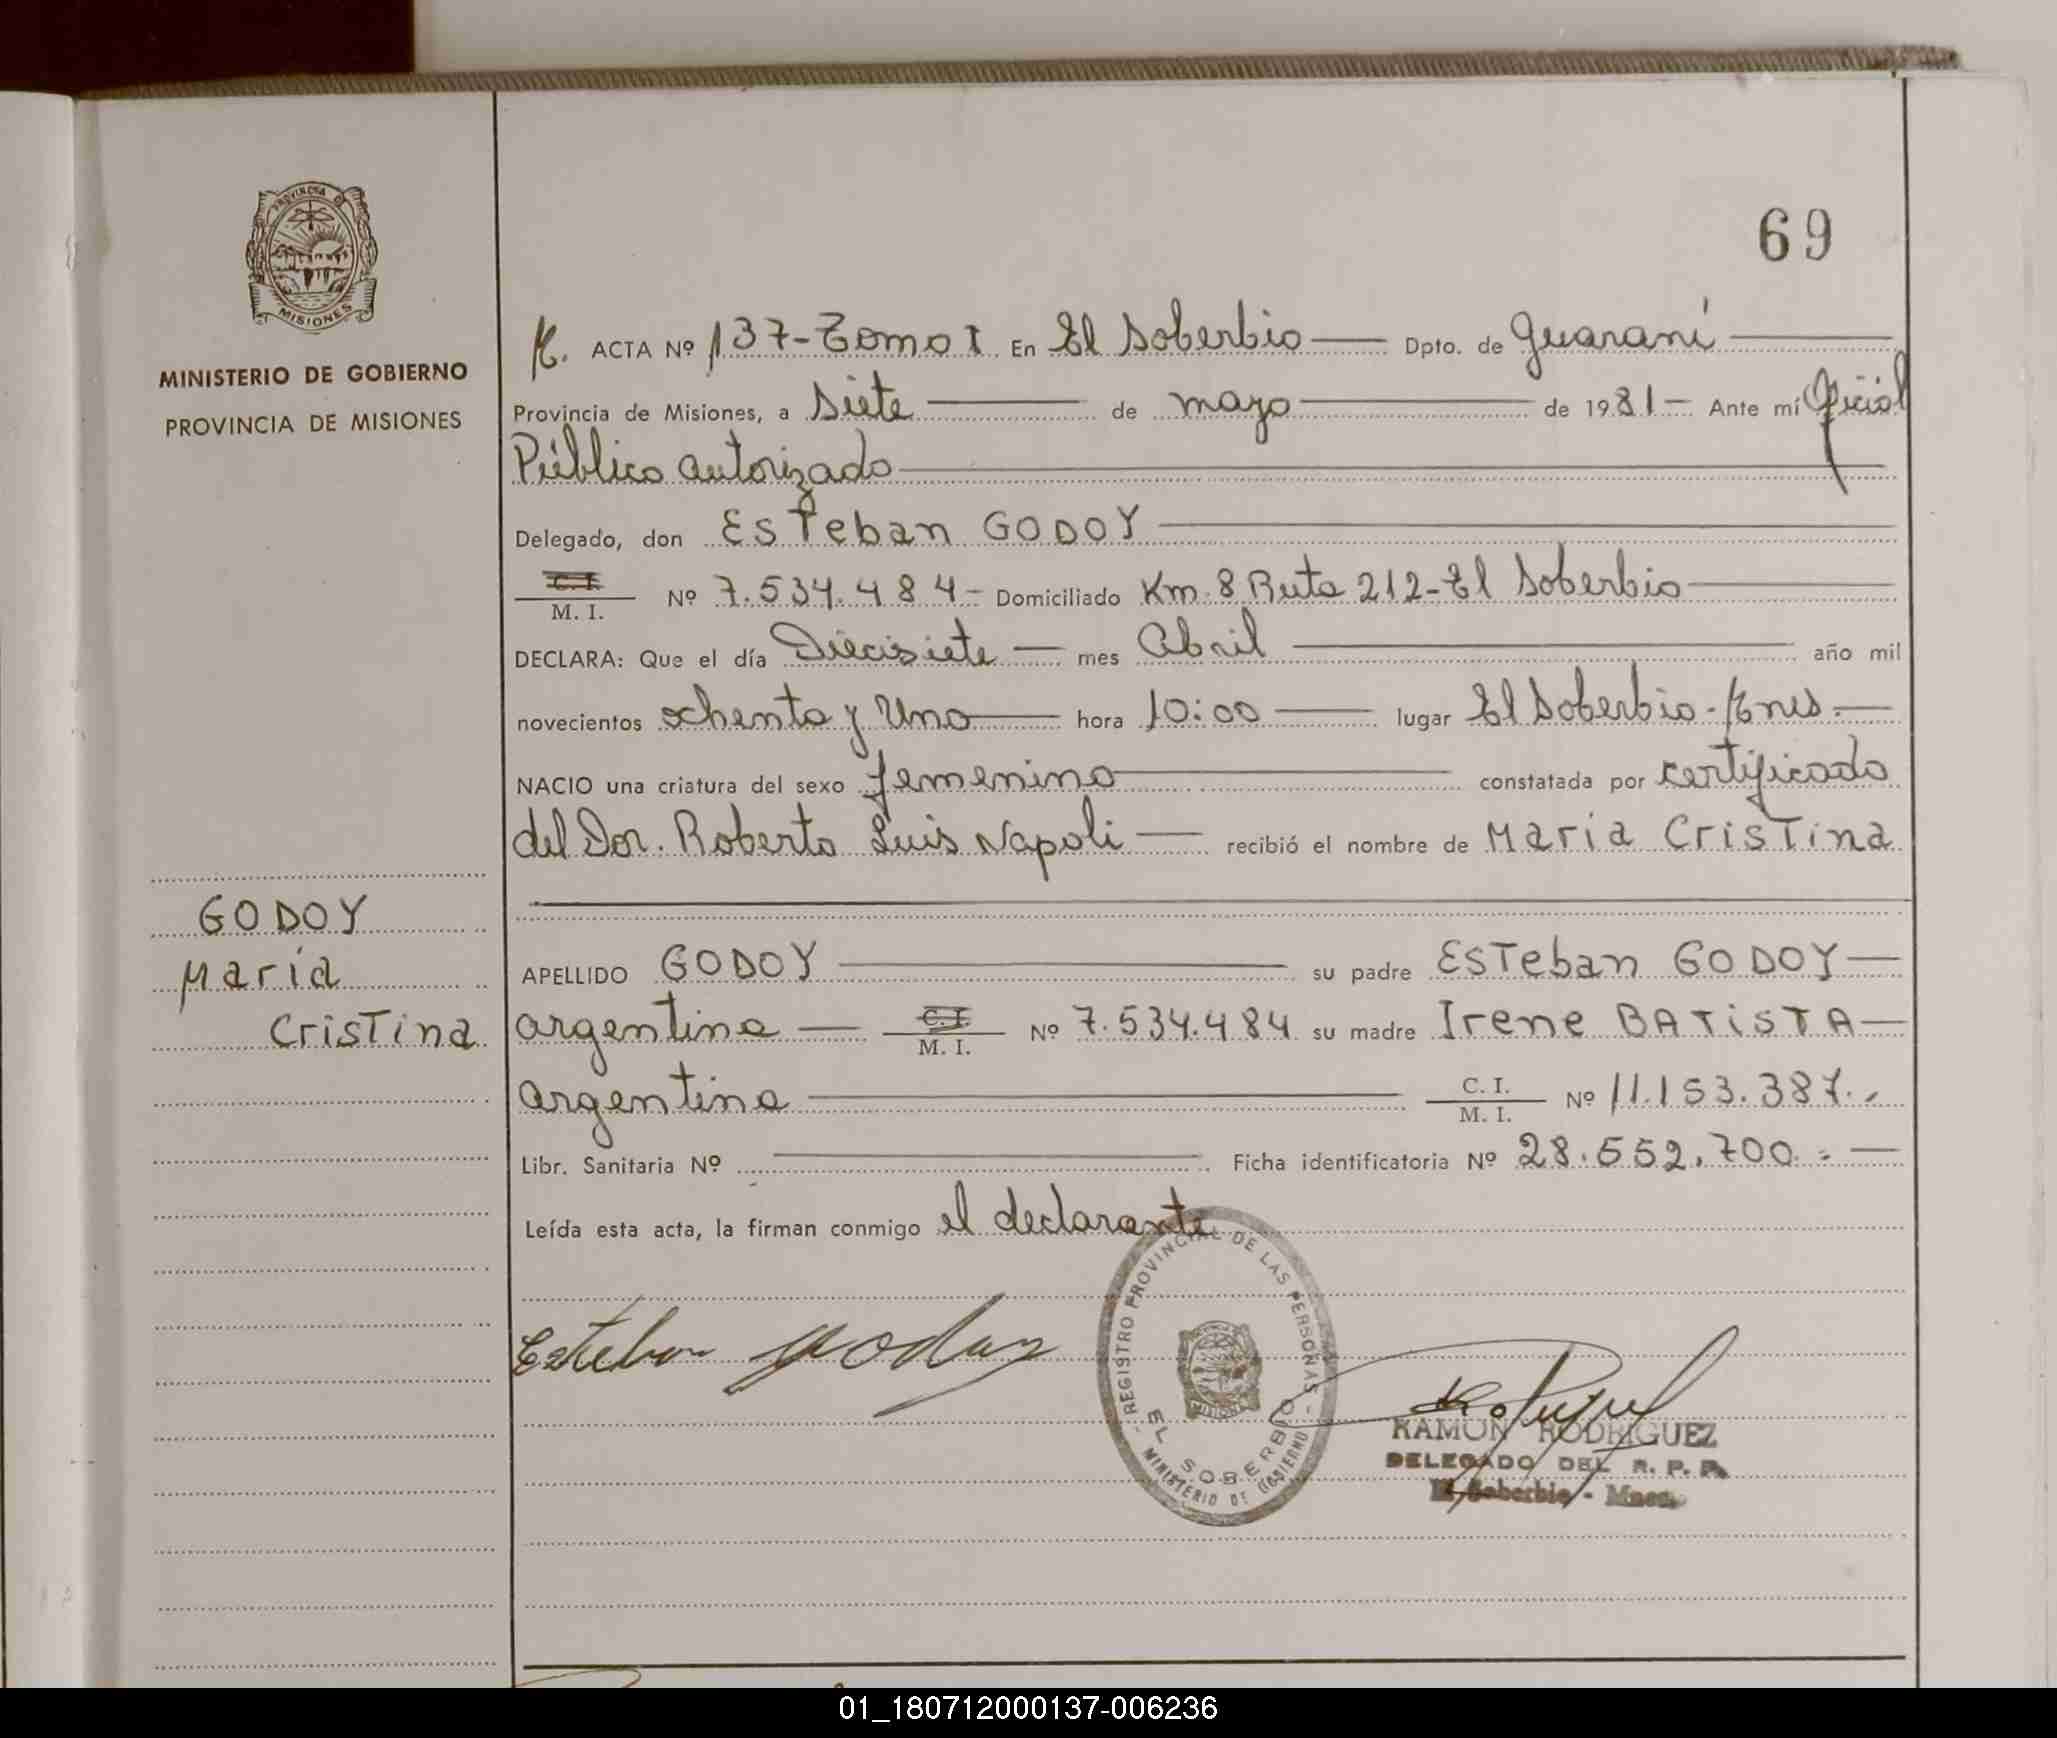 PROVINCIA DE
MISIONES
MINISTERIO DE GOBIERNO
PROVINCIA DE MISIONES
GODOY
María
Cristina
69
ACTA Nº 137-Tomo I En El Soberbio Dpto. de Guaraní
Provincia de Misiones, a Siete de mayo de 1981- Ante mí Oficial
Público autorizado
Delegado, don Esteban GODOY
C. I.
M. I. Nº 7.534.484- Domiciliado Km. 8 Ruta 212-El Soberbio
DECLARA: Que el día Diecisiete mes Abril año mil
novecientos ochenta y Uno hora 10:00 lugar El Soberbio-Mnes.
NACIO una criatura del sexo femenino constatada por certificado
del Dor. Roberto Luis Napoli recibió el nombre de María Cristina
APELLIDO GODOY su padre Esteban GODOY
argentino C. I. M. I. Nº 7.534.484 su madre Irene BATISTA
argentina C. I. M. I. Nº 11.153.387.-
Libr. Sanitaria Nº Ficha identificatoria Nº 28.552.700.-
Leída esta acta, la firman conmigo el declarante
Esteban Godoy
REGISTRO PROVINCIAL DE LAS PERSONAS -
EL SOBERBIO
- MINISTERIO DE GOBIERNO
RAMON RODRIGUEZ
DELEGADO DEL R. P. P.
El Soberbio - Mnes.
01_180712000137-006236